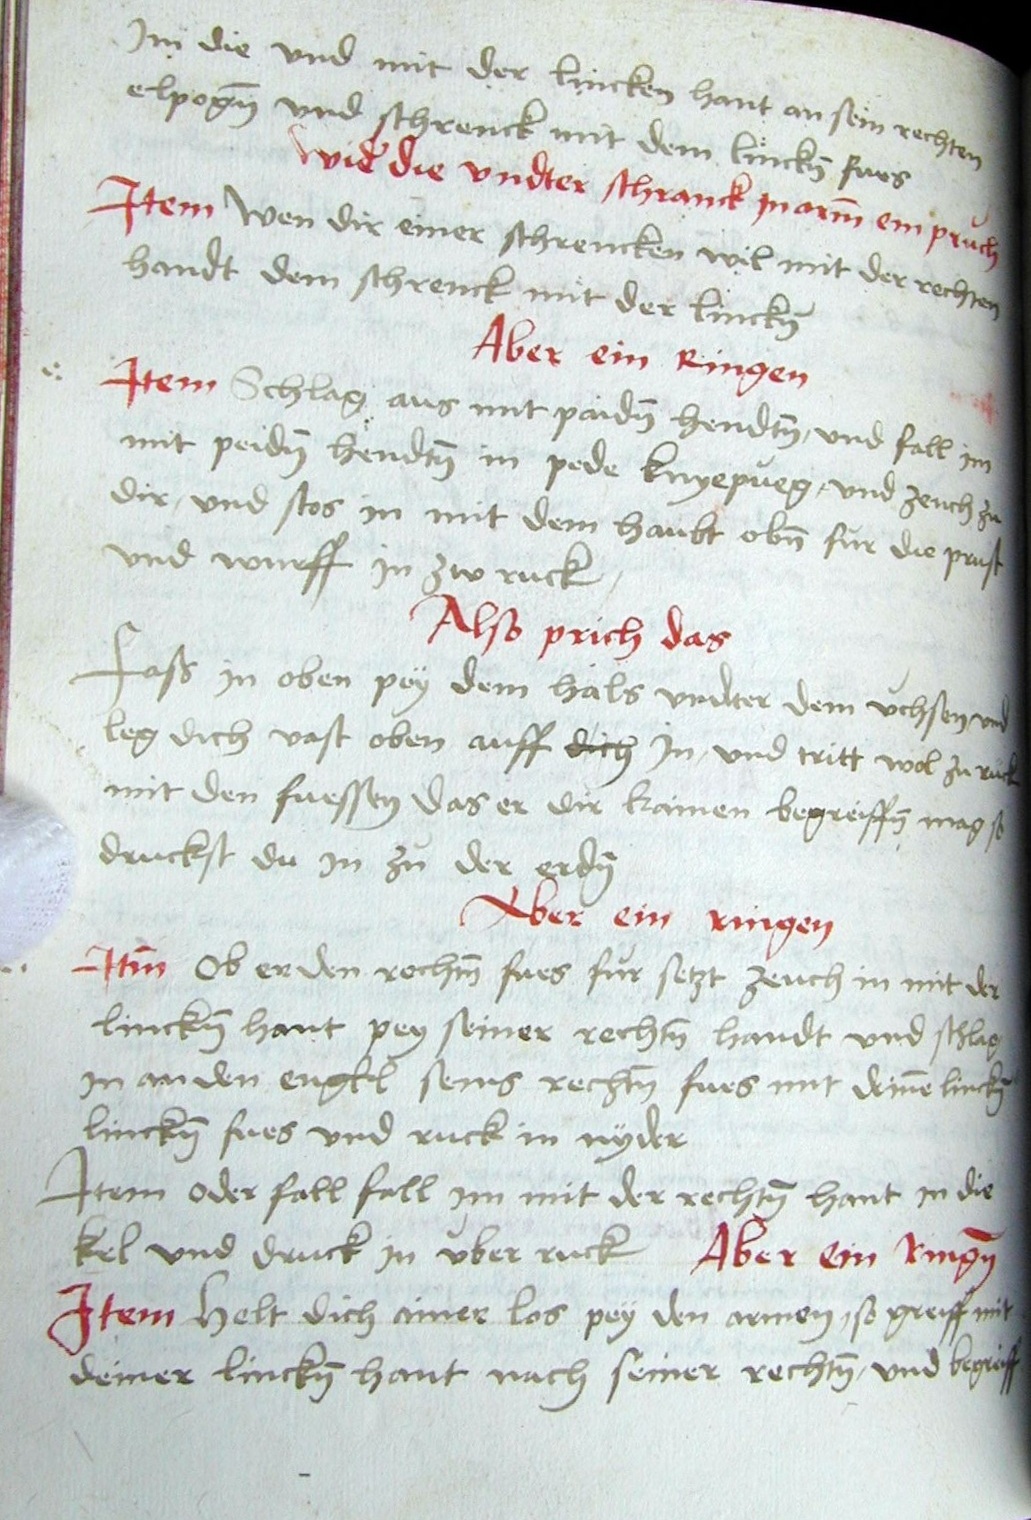 Im die vnd mit der lincken hant an sein rechten
elpogñ vnd schrenck mit dem linckñ fues
wider die vndter schranck in arm̃ ein prüch
Item Wen dir einer schrencken wil mit der rechten
handt dem schrenck mit der linckñ
Aber ein Ringen
Item Schlag aus mit paidñ hendtñ, vnd fall im
mit peidñ hendtñ in pede knyepüeg, vnd zeuch zu
dir, vnd stos in mit dem haubt obñ für die prust
vnd wurff in zw ruck
Also prich das
Fass in oben pey dem hals vndter dem vchsen, vnd
leg dich vast oben auff dich In, vnd tritt wol zu rück
mit den fuessen das er dir kainen begreiffñ mag so
druckst du in zů der erdñ
Aber ein ringen
Itm̃ Ob er den rechtñ fues für setzt zeuch in mit der
linckñ hant pey seiner rechtñ handt vnd schlag
in an den engkl seins rechtñ fues mit deinē linckñ
linckñ fues vnd ruck in nÿder
Item oder fall fall im mit der rechtñ hant in die
kel vnd druck in vber ruck Aber ein Ringñ
Item Helt dich ainer los peÿ den armen, so greiff mit
deiner linckñ hant nach seiner rechtñ, vnd begreiff